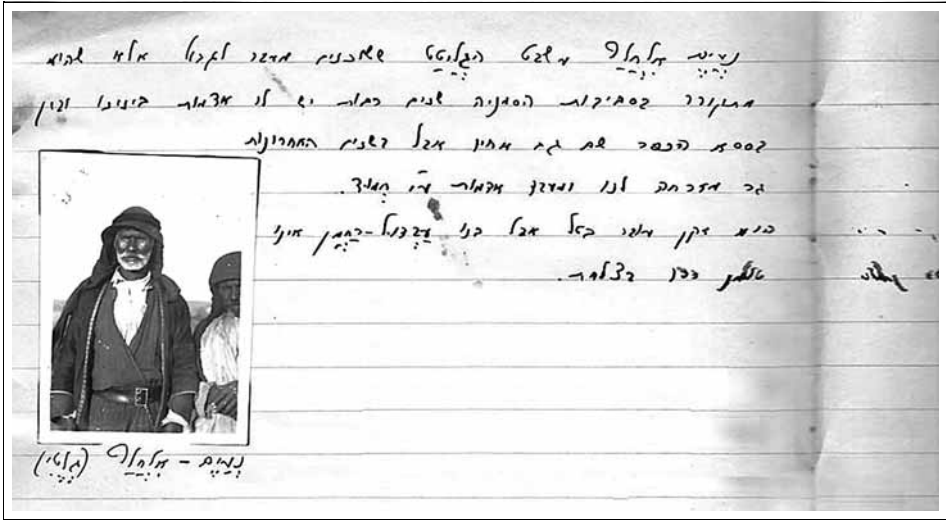 נעים אלחלף משבט הגליטט ששוכנים מעבר לגבול אלא שהוא
מתגורר בסביבות הסמניה שנים רבות יש לו אדמות בינינו ובין
הכפר שם גם אחיו אבל בשנים האחרונות
גר מזרחה לנו ומעבד אדמות ע"י חמוד.
היום זקן עובר בטל אבל בנו עבדול-רחמן אינו
טומן ידו בצלחת.
נעים - אלחלף